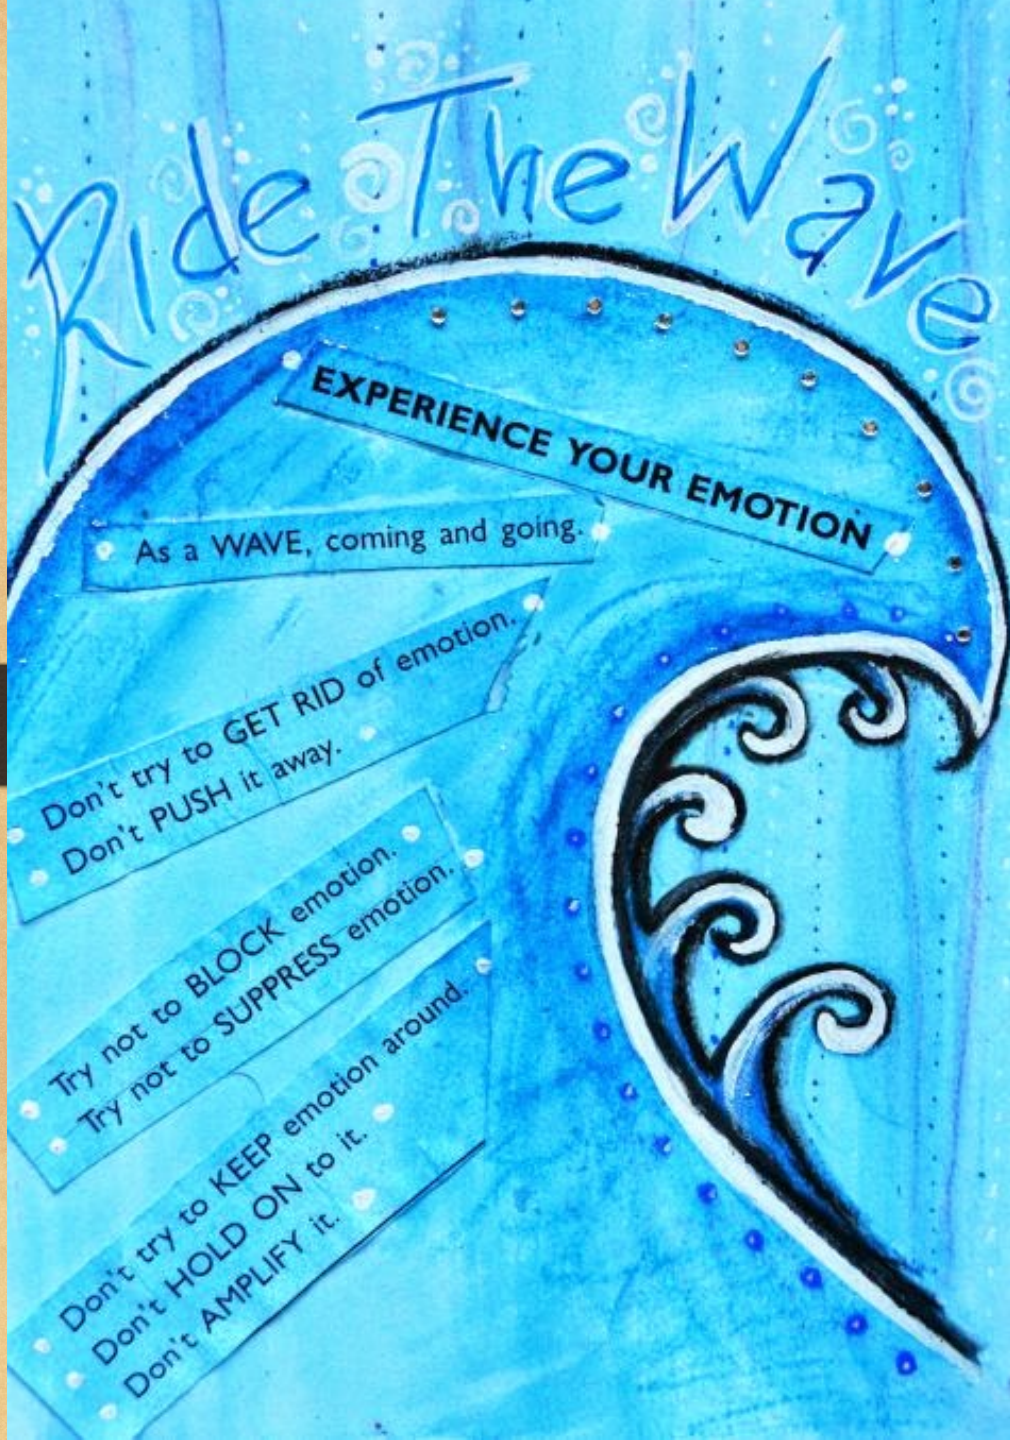 Ride The Wave
EXPERIENCE YOUR EMOTION
As a WAVE, coming and going.
Don't try to GET RID of emotion.
Don't PUSH it away.
Try not to BLOCK emotion.
Try not to SUPPRESS emotion.
Don't try to KEEP emotion around.
Don't HOLD ON to it.
Don't AMPLIFY it.